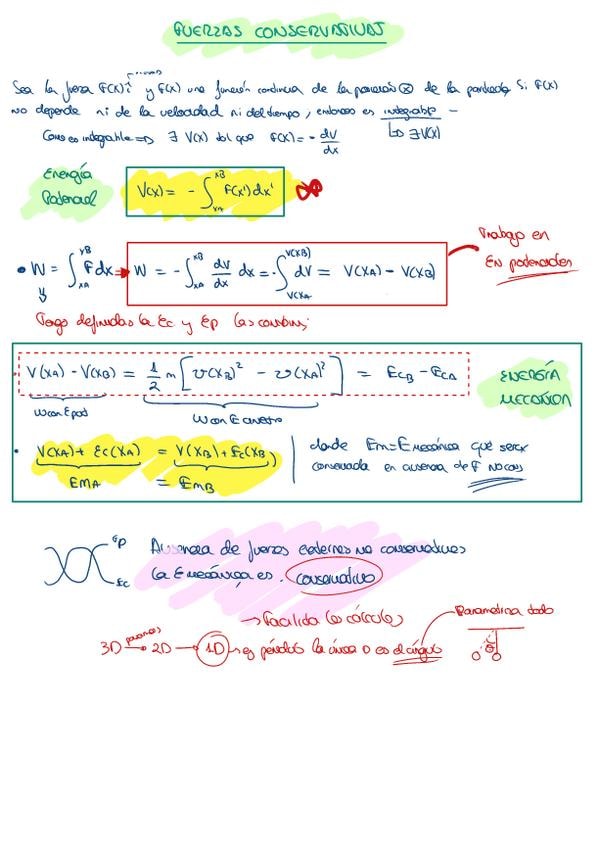 FUERZAS CONSERVATIVAS
Sea la fuerza F(x)i y F(x) una función continua de la posición (x) de la partícula. Si F(x)
no depende ni de la velocidad ni del tiempo, entonces es integrable
Como es integrable => ∃ V(x) tal que F(x) = - dV/dx
↳ ∃ V(x)
Energía
Potencial
V(x) = - ∫_{xA}^{xB} F(x') dx'
Trabajo en
En potenciales
• W = ∫_{xA}^{xB} F dx → W = - ∫_{xA}^{xB} dV/dx dx = - ∫_{V(xA)}^{V(xB)} dV = V(xA) - V(xB)
Tengo definidas la Ec y Ep las combino:
V(xA) - V(xB) = 1/2 m [v(xB)² - v(xA)²] = EcB - EcA
ENERGÍA
MECÁNICA
W con E pot
W con E cinética
• V(xA) + Ec(xA) = V(xB) + Ec(xB)
EMA = EMB
donde Em = E mecánica que será
conservada en ausencia de F no cons
Ep
Ec
Ausencia de fuerzas externas no conservativas
la E mecánica es conservativa
→ Facilita los cálculos
Parametriza todo
3D → 2D → 1D → ej péndulo la única es el ángulo